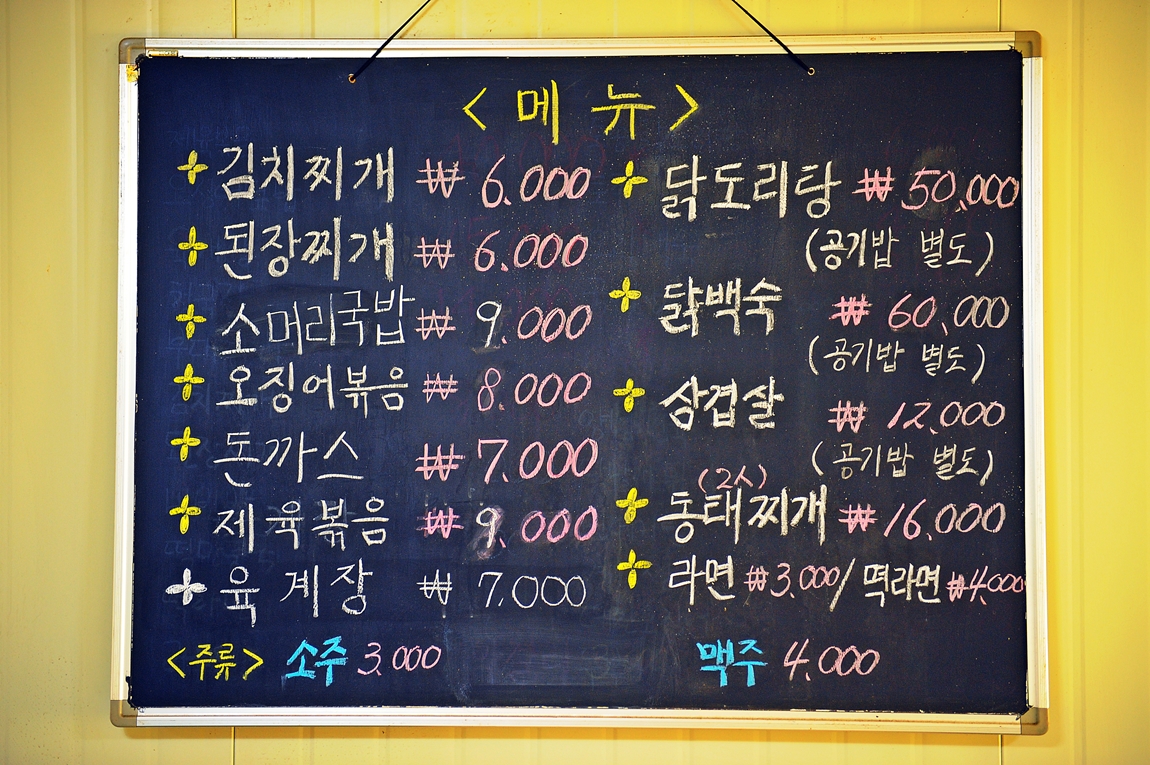 <메뉴>
김치찌개 ₩ 6.000
된장찌개 ₩ 6.000
소머리국밥 ₩ 9.000
오징어볶음 ₩ 8.000
돈까스 ₩ 7.000
제육볶음 ₩ 9.000
육계장 ₩ 7.000
닭도리탕 ₩ 50.000
(공기밥 별도)
닭백숙 ₩ 60,000
(공기밥 별도)
삼겹살 ₩ 12.000
(공기밥 별도)
(2人)
동태찌개 ₩ 16.000
라면 ₩3.000/ 떡라면 ₩4.000
<주류> 소주 3.000
맥주 4.000